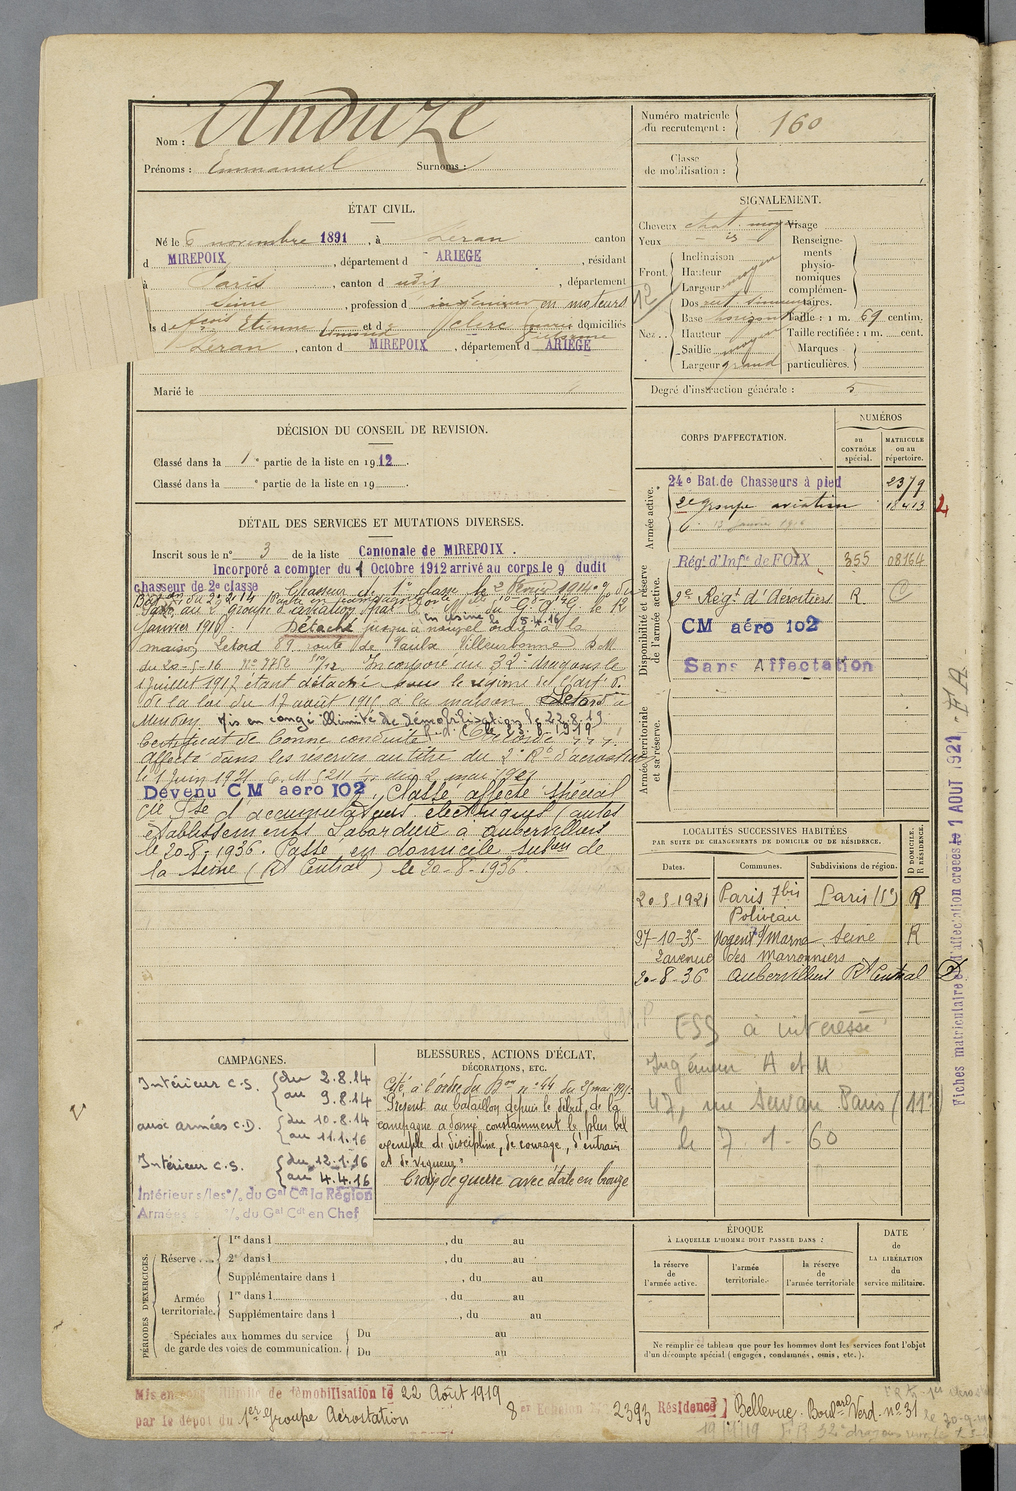 Nom : Anduze
Prénoms : Emmanuel Surnoms :
Numéro matricule du recrutement : 160
Classe de mobilisation :
ÉTAT CIVIL.
Né le 6 novembre 1891, à Léran canton
d MIREPOIX, département d ARIEGE, résidant
à Paris, canton d udit, département
Seine, profession d ingénieur en moteurs
ls de Etienne Edmond et d domiciliés
Léran, canton d MIREPOIX, département d ARIEGE
Marié le
SIGNALEMENT.
Cheveux chat. moy
Yeux
Front. Inclinaison
Hauteur moyen
Largeur moyen
Nez. Dos rect. sinueux
Base horizont
Hauteur moyen
Saillie moyen
Largeur grand
Visage
Renseignements physionomiques complémentaires.
Taille : 1 m. 69 centim.
Taille rectifiée : 1 m. cent.
Marques particulières.
12
Degré d'instruction générale : 5
DÉCISION DU CONSEIL DE REVISION.
Classé dans la 1e partie de la liste en 1912.
Classé dans la e partie de la liste en 19 .
DÉTAIL DES SERVICES ET MUTATIONS DIVERSES.
Inscrit sous le n° 3 de la liste Cantonale de MIREPOIX.
Incorporé a compter du 1 Octobre 1912 arrivé au corps le 9 dudit
chasseur de 2e classe Chasseur de 1e classe le
Passé au 2e groupe d'aviation
Janvier 1916. Détaché en usine le 5.4.16 jusqu'à nouvel ordre à la
maison Letord 89 route de Vaulx Villeurbanne D.M
du 20-5-16 Incorporé au 32e dragons le
1 Juillet 1917 étant détaché sous le régime de l'art. 6
de la loi du 17 août 1915 à la maison Letord à
Meudon Mis en congé illimité de démobilisation le 22.8.19
Certificat de bonne conduite Accordé
Affecté dans les réserves au titre du 2e Rt d'aérostiers
le 1 Juin 1921 C.M 5211 du 2 mai 1921
Devenu CM aéro 102, Classé affecté spécial
Cie Fse d'accumulateurs électriques (autos
établissements Labordure à Aubervilliers
le 20-8-1936. Passé en domicile subon de
la Seine (Rt Central) le 20-8-1936.
CORPS D'AFFECTATION.
NUMÉROS
au CONTRÔLE spécial.
MATRICULE ou au répertoire.
Armée active.
24e Bat. de Chasseurs à pied 2379
2e groupe aviation 18413
13 janvier 1916
Disponibilité et réserve de l'armée active.
Régt d'Infie de FOIX 355 08164
2e Régt d'Aérostiers R
CM aéro 102
Sans Affectation
Armée territoriale et sa réserve.
LOCALITÉS SUCCESSIVES HABITÉES
PAR SUITE DE CHANGEMENTS DE DOMICILE OU DE RÉSIDENCE.
Dates. Communes. Subdivisions de région. D DOMICILE. R RÉSIDENCE.
20.5.1921 Paris 7bis Poliveau Paris (1e) R
27-10-35- Nogent s/Marne Seine R
2 avenue des Marronniers
20-8-36 Aubervilliers Rt Central D
ESS à interessé
Ingénieur A et M
47, rue Servan Paris (11e)
le 7-1-60
CAMPAGNES.
Intérieur C.S. du 2.8.14 au 9.8.14
aux armées C.D. du 10.8.14 au 11.1.16
Intérieur C.S. du 12.1.16 au 4.4.16
Intérieur s/les °/. du Gal Cdt la Région
Armées °/. du Gal Cdt en Chef
BLESSURES, ACTIONS D'ÉCLAT,
DÉCORATIONS, ETC.
Cité à l'ordre du Bon n° 44 du 25 mai 1915
"Présent au bataillon depuis le début de la
campagne a donné constamment le plus bel
exemple de discipline, de courage, d'entrain
et de vigueur"
Croix de guerre avec étoile en bronze
PÉRIODES D'EXERCICES.
Réserve
1re dans l , du au
2e dans l , du au
Supplémentaire dans l , du au
Armée territoriale.
1re dans l , du au
Supplémentaire dans l , du au
Spéciales aux hommes du service de garde des voies de communication.
Du au
Du au
ÉPOQUE
À LAQUELLE L'HOMME DOIT PASSER DANS :
la réserve de l'armée active.
l'armée territoriale.
la réserve de l'armée territoriale
DATE de LA LIBÉRATION du service militaire.
Ne remplir ce tableau que pour les hommes dont les services font l'objet
d'un décompte spécial (engagés, condamnés, omis, etc.).
Mis en congé illimité de démobilisation le 22 Août 1919
par le dépôt du 1er groupe Aérostation 8e Echelon N° 2393 Résidence Bellevue. Boulard Verd. n° 31
Fiches matriculaire et d'affectation créées le 1 AOUT 1921